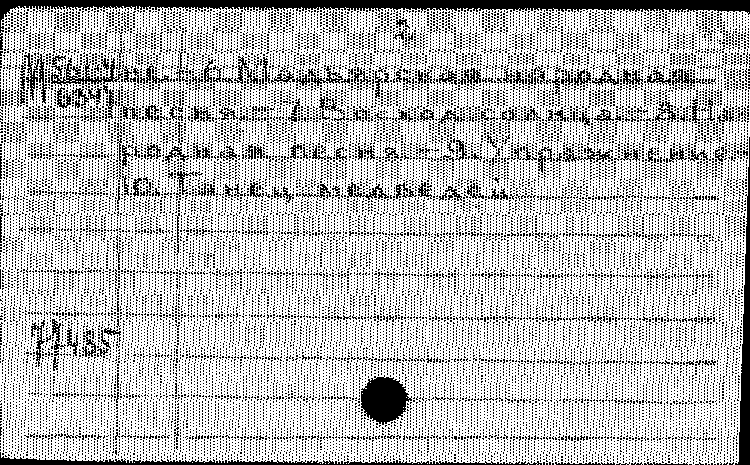 2
6. Мадьярская народная
песня. - 7. Восход солнца. - 8. На-
родная песня. - 9. Упражнение. -
10. Танец медведей
71485